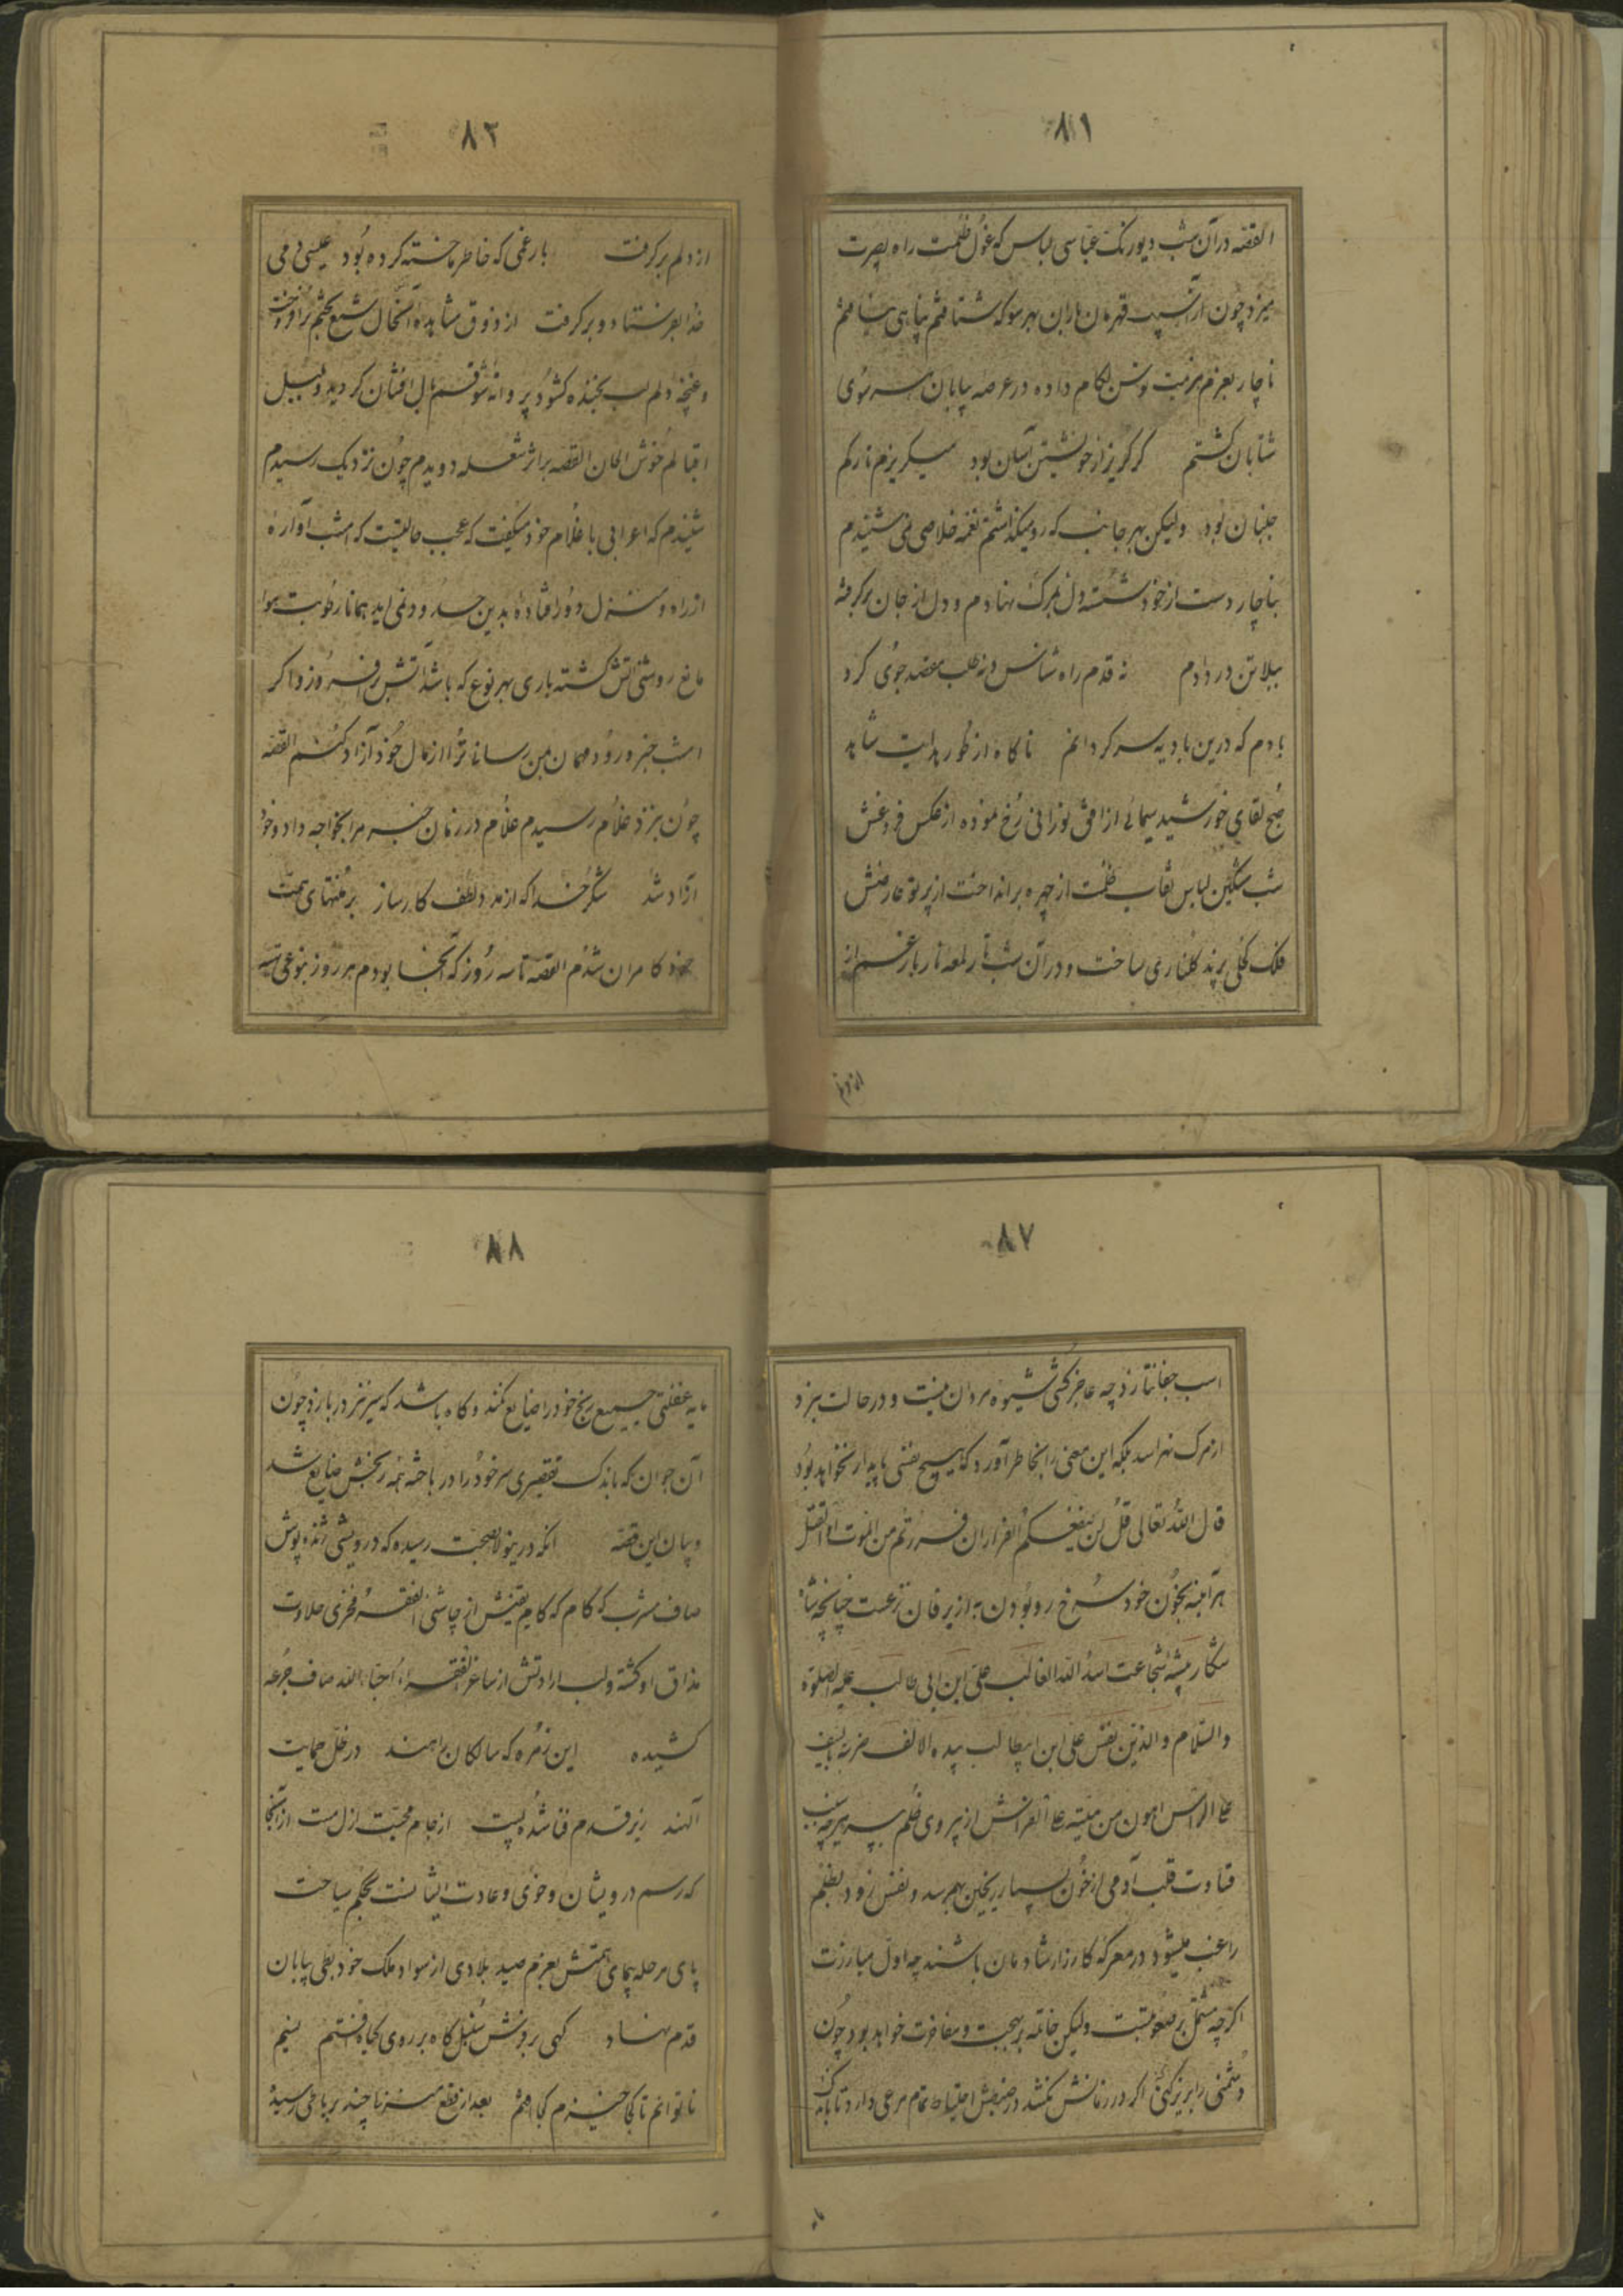 ۸۱
القصه در آن شب دیورنک عباسی لباس که غول ظلمت راه بصیرت
میزد چون از آسیب قهرمان باران بهر سو که شتافتم پناهی نیافتم
ناچار بعزم هزیمت توسن لکام داده در عرصه بیابان هر سوی
شتابان کشتم کر کریز از خویشتن آسان بود میکریزم تا رکم
جنبان بود ولیکن بهر جانب که رو میکذاشتم نغمه خلاصی نمی شنیدم
بناچار دست از خود شسته دل بمرک نهادم و دل از جان برکرفته
ببلا تن در دادم نه قدم راه شناس و نه طلب مقصد جوی کرد
بادم که درین بادیه سرکردانم ناکاه از طور هدایت شاهد
صبح لقای خورشید سیمائی از افق نورانی رخ نموده از عکس فروغش
شب مشکین لباس نقاب ظلمت از چهره برانداخت از پرتو عارضش
فلک کحلی پرند کلناری ساخت و در آن شب تار لمعه نار بار غم از
از دلم
۸۲
از دلم برکرفت بار غمی که خاطر ما خسته کرده بود عیسی دمی
خدا بفرستاد و برکرفت از ذوق مشاهده آنحال شمع چشم برافروخت
و غنچه دلم لب بخنده کشود پروانه شوقم بال افشان کردید و بلبل
اقبالم خوش الحان القصه بر اثر شعله دویدم چون نزدیک رسیدم
شنیدم که اعرابی با غلام خود میکفت که عجب حالتیست که امشب آواره
از راه و منزل دور افتاده بدین حدود نمی آید همانا رطوبت هوا
مانع روشنی آتش کشته باری بهر نوع که باشد آتش برافروز و اکر
امشب خبر ورود مهمان بمن رسانی ترا از مال خود آزاد کنم القصه
چون بنزد غلام رسیدم غلام در زمان خبر مرا بخواجه داد و خود
آزاد شد شکر خدا که از مدد لطف کارساز بر منتهای همت
خود کامران شدم القصه تا سه روز که آنجا بودم هر روز بنوعی
۸۷
اسب جفا نتازد چه عاجز کشی شیوه مردان نیست و در حالت نبرد
از مرک نهراسد بلکه این معنی را بخاطر آورد که هیچ نفسی پایدار نخواهد بود
قال الله تعالی قل لن ینفعکم الفرار ان فررتم من الموت او القتل
هر آینه بخون خود سرخ رو بودن به از یرقان زعمت چنانچه شاه
شکار بیشه شجاعت اسد الله الغالب علی ابن ابی طالب علیه الصلوة
والسلام والذین نفس علی ابن ابیطالب بیده الالف ضربة بالسیف
علی الراس اهون من میتة علی الفراش از پیروی ظلم بپرهیزد چه بسبب
قساوت قلب آدمی از خون بسیار ریختن بهم رسد و نفس زود بظلم
راغب میشود در معرکه کارزار شادمان باشند چه اول مبارزت
اکر چه مشتمل بر صعوبتست ولیکن خاتمه بر بهجت و مفاخرت خواهد بود چون
دشمنی را بزیر کنی اکر در زمانش نکشد در ضبطش احتیاط تمام مرعی دارد تا باندک
۸۸
مایه غفلتی جمیع رنج خود را ضایع نکند و کاه باشد که سر نیز در بازد چون
آن جوان که باندک تقصیری سر خود را در باخته همه رنجش ضایع شد
و بیان این قصه آنکه درینولا بصحبت رسیده که درویشی ژنده پوش
صاف مشرب که کام که کام یقینش از چاشنی الفقر فخری حلاوت
مذاق او کشته و لب ارادتش از ساغر الفقراء احباء الله صاف جرعه
کشیده این زمره که سالکان راهند در ظل حمایت
آلهند زیر قدم فنا شده پست از جام محبت ازل مست از آنجا
که رسم درویشان و خوی و عادت ایشانست بحکم سیاحت
پای مرحله پیمای همتش بعزم صید بلادی از سواد ملک خود بطی بیابان
قدم نهاد کهی بر دوش سنبل کاه بر روی کیاه افتم نسیم
ناتوانم تا کجا خیزم کجا افتم بعد از قطع منزلی چند برباطی رسیده